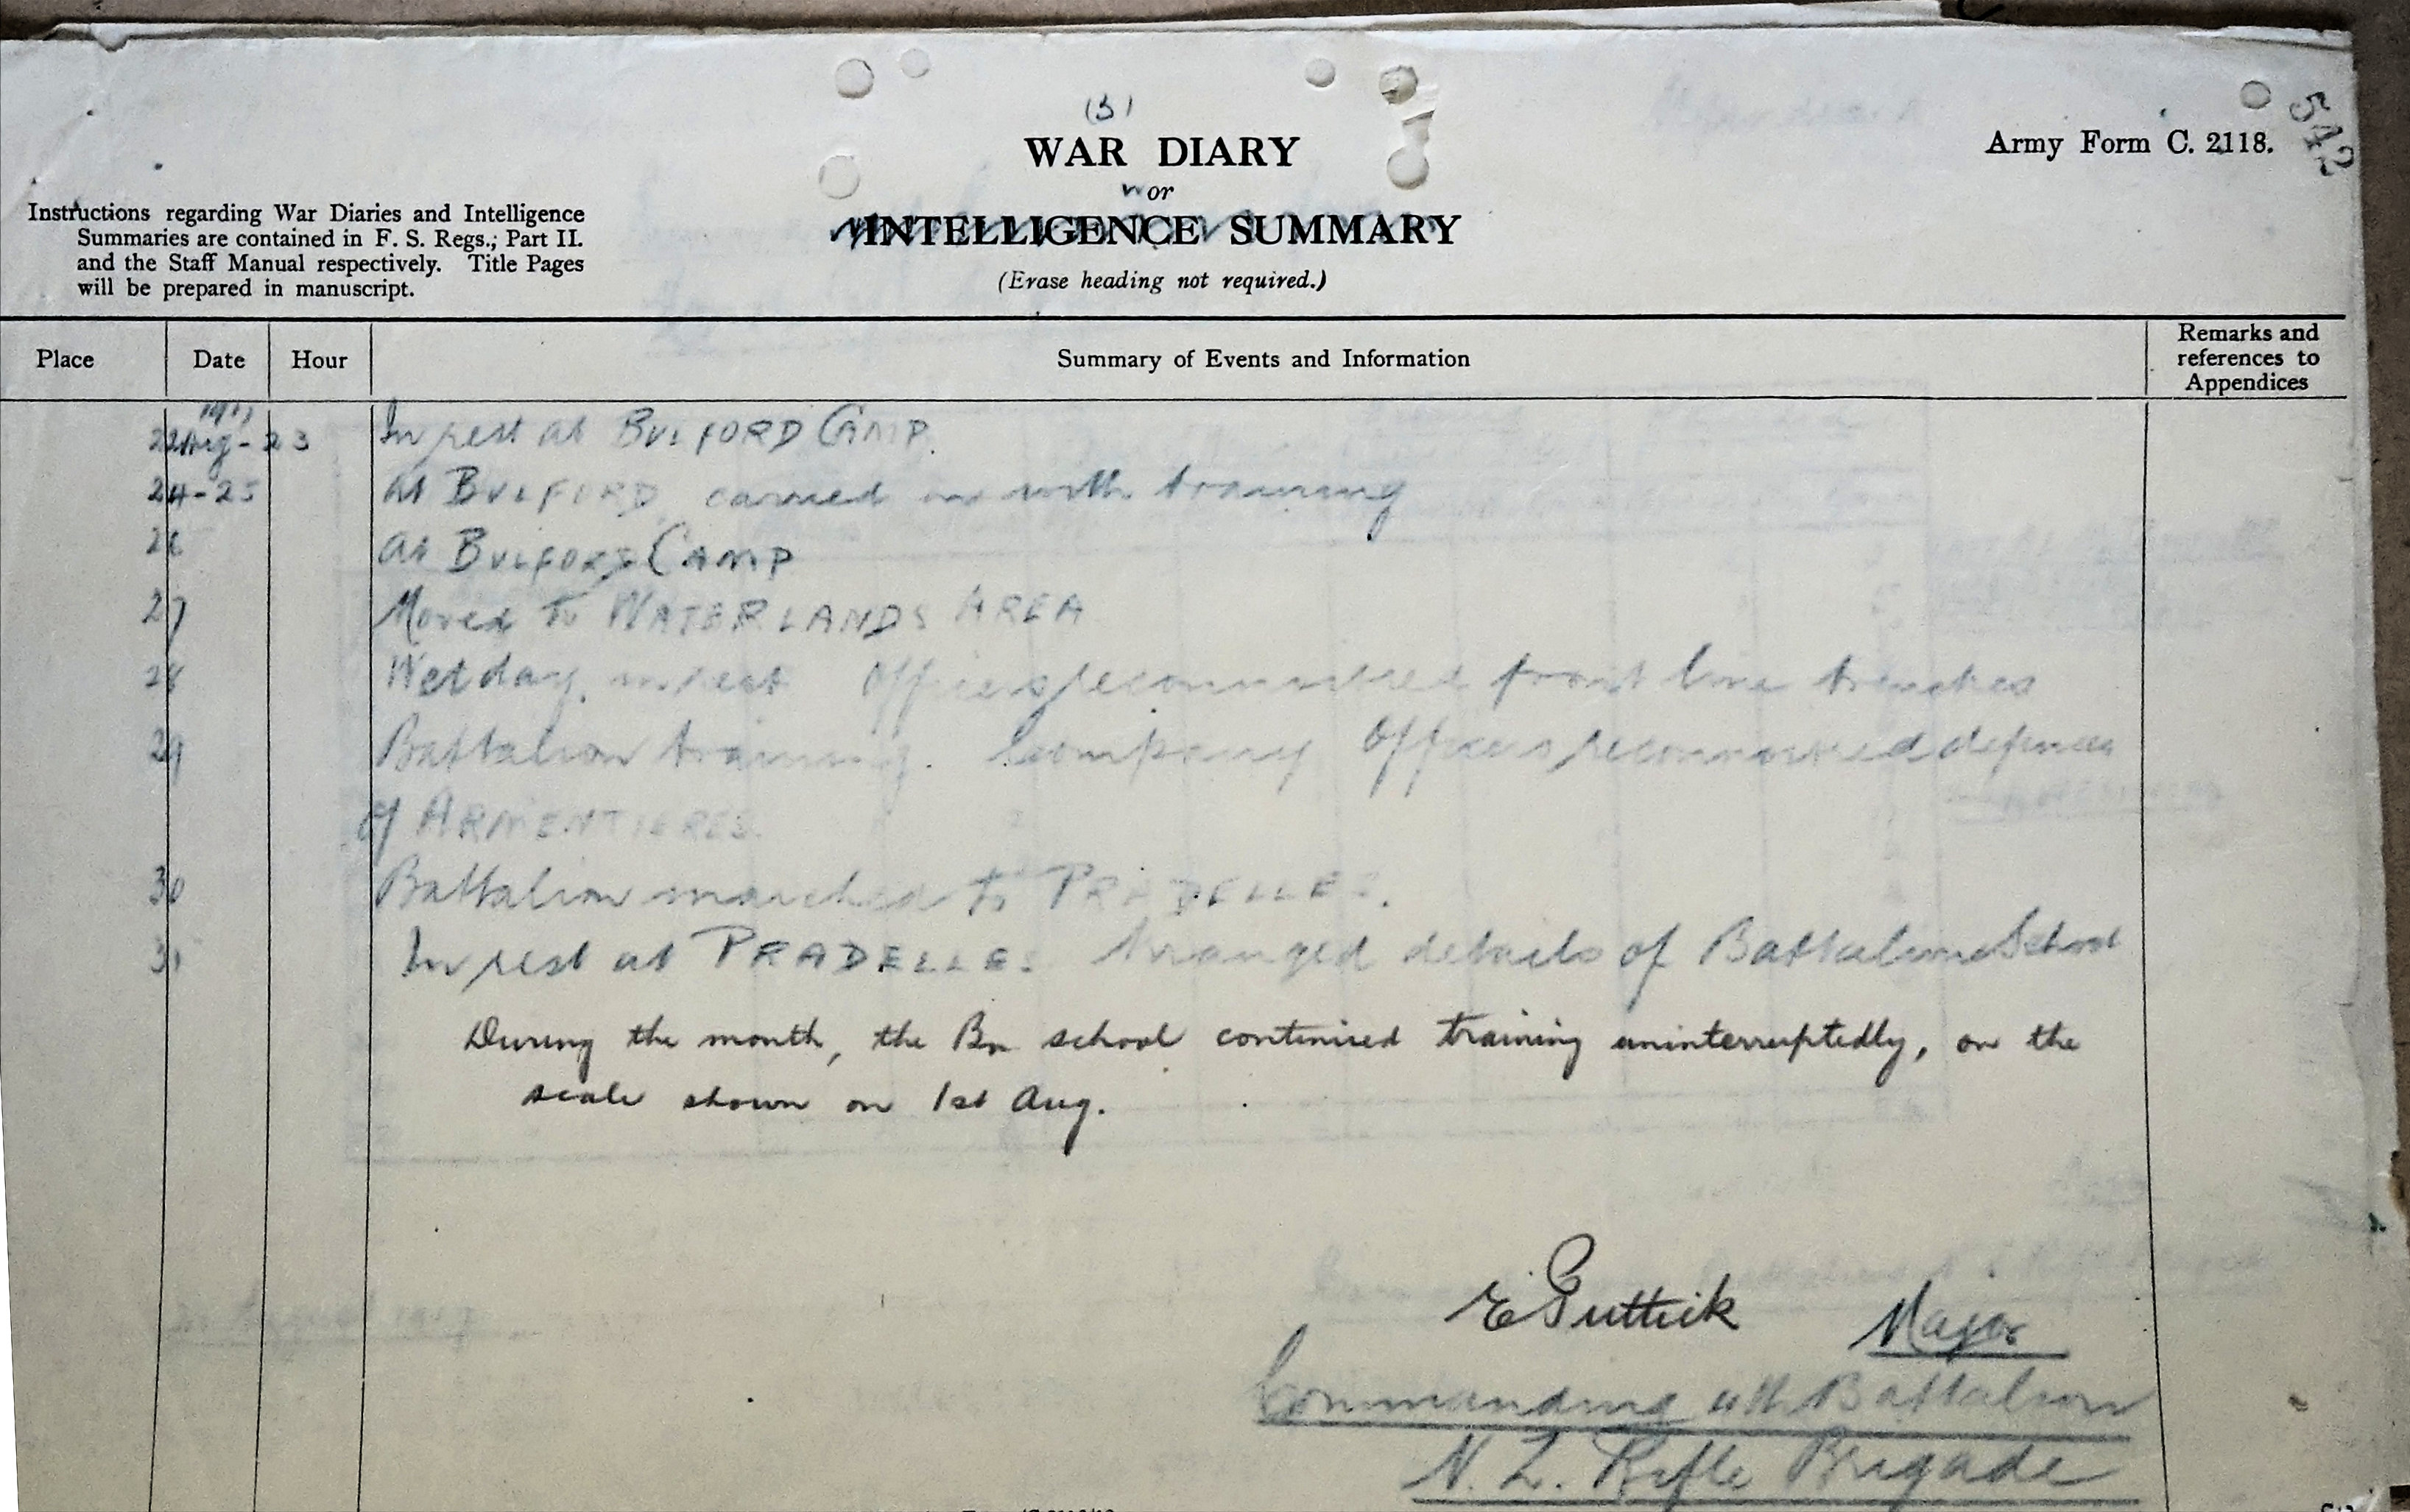 (3)
WAR DIARY
Army Form C. 2118.
542
or
INTELLIGENCE SUMMARY
(Erase heading not required.)
Instructions regarding War Diaries and Intelligence
Summaries are contained in F. S. Regs., Part II.
and the Staff Manual respectively. Title Pages
will be prepared in manuscript.
Place Date Hour Summary of Events and Information Remarks and references to Appendices
1917
22 Aug-23 In rest at BULFORD CAMP.
24-25 At BULFORD carried on with training
26 At BULFORD CAMP
27 Moved to WATERLANDS AREA
28 Wet day. in rest Officers reconnoitred front line trenches
29 Battalion training. Company Officers reconnoitred defences
of ARMENTIERES.
30 Battalion marched to PRADELLES.
31 In rest at PRADELLES Arranged details of Battalion School
During the month, the Bn school continued training uninterruptedly, on the
scale shown on 1st Aug.
E Puttick Major
Commanding 4th Battalion
N. Z. Rifle Brigade